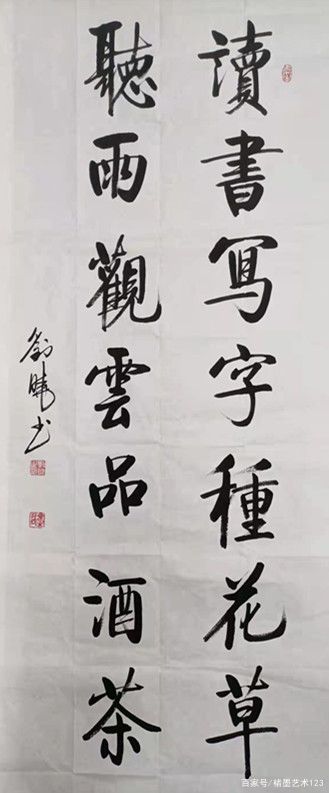 讀書寫字種花草
聽雨觀雲品酒茶
劉曉書
百家号/楮墨艺术123